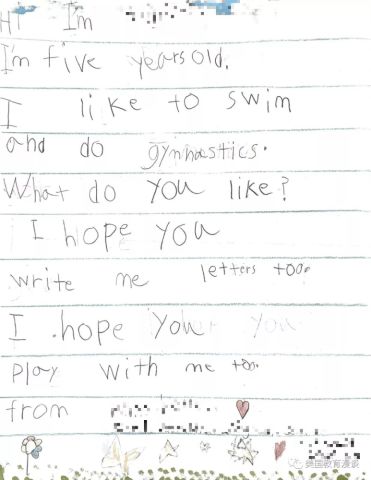 Hi I'm
I'm five years old.
I like to swim
and do gynnastics.
What do you like?
I hope you
write me letters too.
I hope you you
play with me too.
from
美国教育漫谈